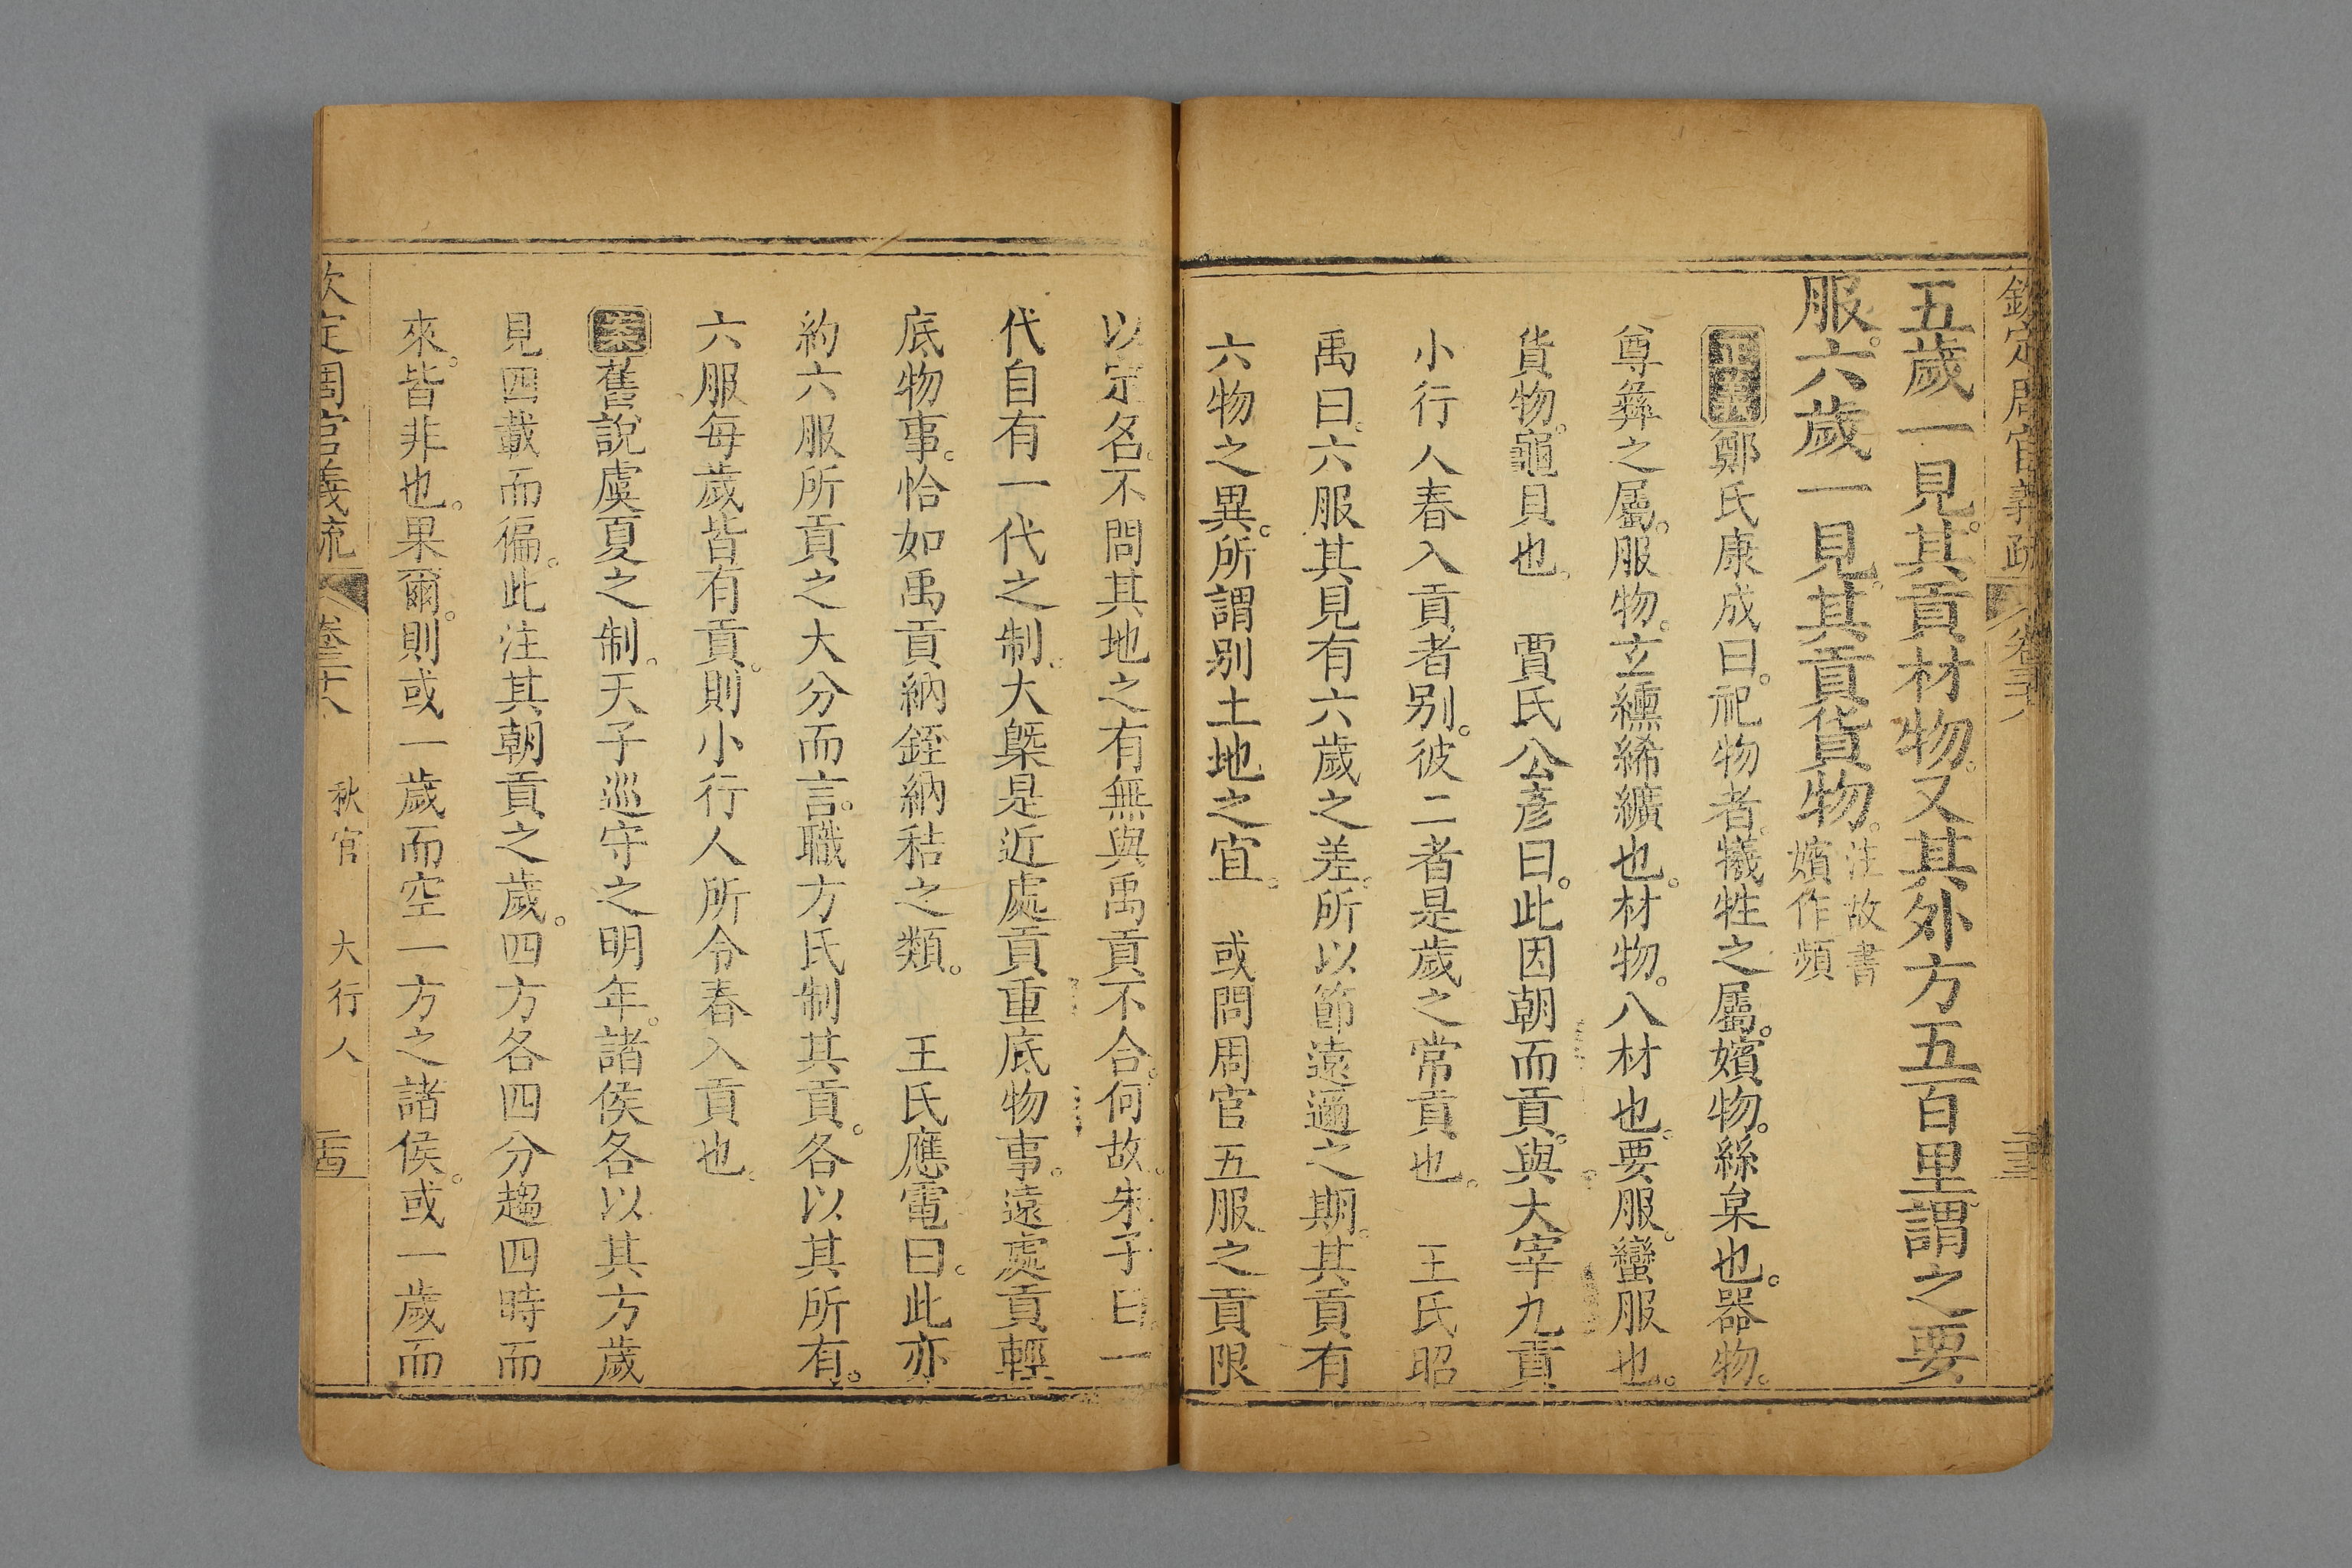 欽定周官義疏 卷三十八
五歲一見。其貢材物。又其外方五百里。謂之要
服。六歲一見。其貢貨物。注故書
嬪作頻
正義鄭氏康成曰。祀物者。犧牲之屬。嬪物。絲枲也。器物。
尊彝之屬。服物。玄纁絺纊也。材物。八材也。要服。蠻服也。
貨物。龜貝也。 賈氏公彥曰。此因朝而貢。與大宰九貢
小行人春入貢者別。彼二者是歲之常貢也。 王氏昭
禹曰。六服其見有六歲之差。所以節遠邇之期。其貢有
六物之異。所謂別土地之宜。 或問周官五服之貢限
以定名。不問其地之有無與禹貢不合。何故。朱子曰。一
代自有一代之制。大槩是近處貢重底物事。遠處貢輕
底物事。恰如禹貢納銍納秸之類。 王氏應電曰。此亦
約六服所貢之大分而言。職方氏制其貢。各以其所有。
六服每歲皆有貢。則小行人所令春入貢也。
案舊說虞夏之制。天子巡守之明年。諸侯各以其方歲
見四載而徧。此注其朝貢之歲。四方各四分趨四時而
來。皆非也。果爾。則或一歲而空一方之諸侯。或一歲而
欽定周官義疏 卷三十八 秋官 大行人